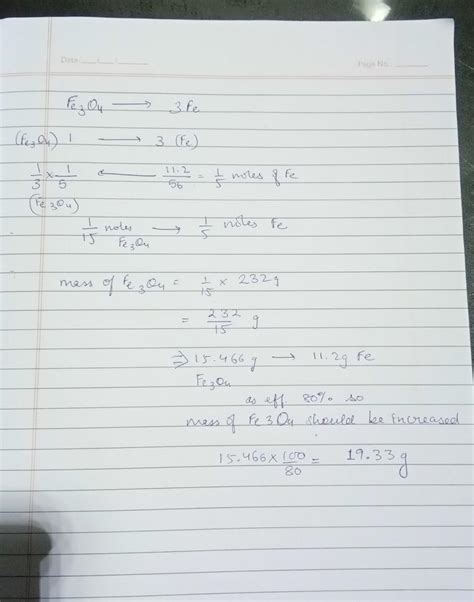 Date ___/___/___ Page No. ______
Fe3O4 ⟶ 3Fe
(Fe3O4) 1 ⟶ 3 (Fe)
1/3 × 1/5 ⟵ 11.2/56 = 1/5 moles of Fe
(Fe3O4)
1/15 moles Fe3O4 → 1/5 moles Fe
mass of Fe3O4 = 1/15 × 232g
= 232/15 g
⇒ 15.466 g → 11.2g Fe
Fe3O4
as eff 80% so
mass of Fe3O4 should be increased
15.466 × 100/80 = 19.33 g